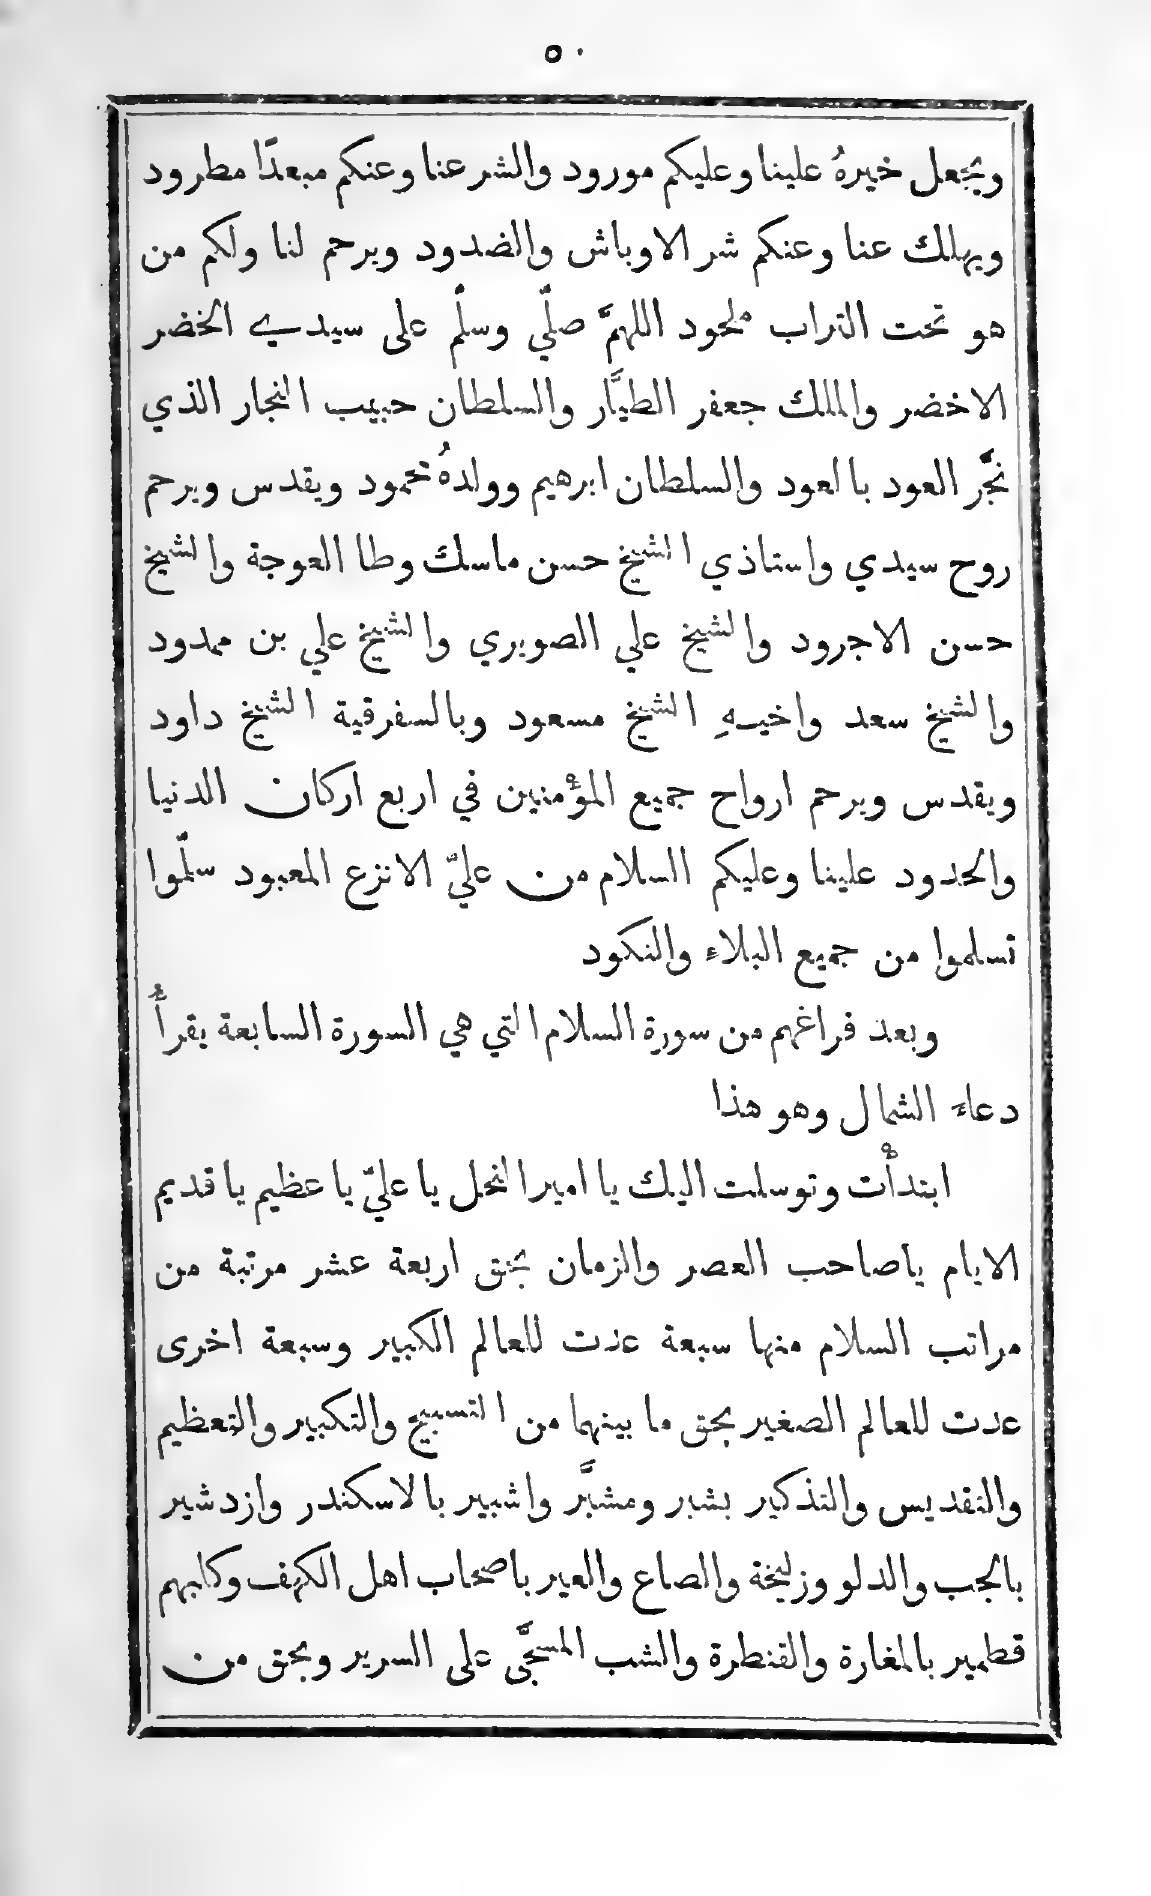 ٥٠
ويجعل خيرهُ علينا وعليكم مورود والشر عنا وعنكم مبعدًا مطرود
ويهلك عنا وعنكم شر الاوباش والضدود ويرحم لنا ولكم من
هو تحت التراب ملحود اللهمَّ صلّي وسلّم على سيدي الخضر
الاخضر والملك جعفر الطيَّار والسلطان حبيب النجار الذي
نجَّر العود بالعود والسلطان ابرهيم وولدهُ محمود ويقدس ويرحم
روح سيدي واستاذي الشيخ حسن ماسك وطا العوجة والشيخ
حسن الاجرود والشيخ علي الصويري والشيخ علي بن ممدود
والشيخ سعد واخيهِ الشيخ مسعود وبالسفرقية الشيخ داود
ويقدس ويرحم ارواح جميع المؤمنين في اربع اركان الدنيا
والحدود علينا وعليكم السلام من عليّ الانزع المعبود سلّموا
تسلموا من جميع البلاء والنكود
وبعد فراغهم من سورة السلام التي هي السورة السابعة يقرأُ
دعاءَ الشمال وهو هذا
ابتدأت وتوسلت اليك يا امير النحل يا عليّ يا عظيم يا قديم
الايام ياصاحب العصر والزمان بحق اربعة عشر مرتبة من
مراتب السلام منها سبعة عدت للعالم الكبير وسبعة اخرى
عدت للعالم الصغير بحق ما بينهما من التسبيح والتكبير والتعظيم
والتقديس والتذكير بشبر ومشبَّر واشبير بالاسكندر وازدشير
بالجب والدلو وزليخة والصاع والعير باصحاب اهل الكهف وكلبهم
قطمير بالمغارة والقنطرة والشب المسجَّى على السرير وبحق من